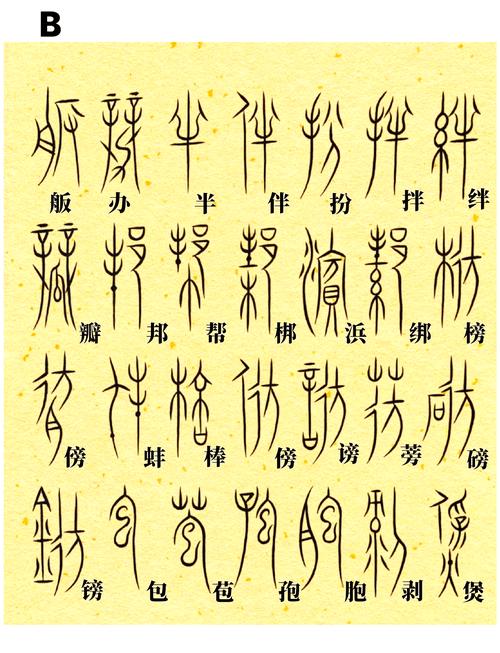 B
舨 办 半 伴 扮 拌 绊
瓣 邦 帮 梆 浜 绑 榜
傍 蚌 棒 傍 谤 蒡 磅
镑 包 苞 孢 胞 剥 煲